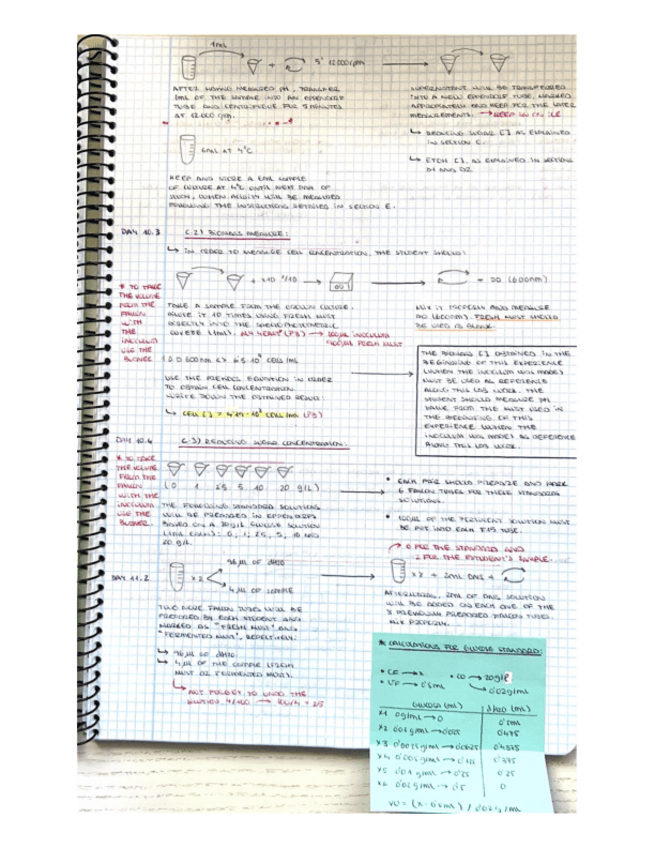 1mL
+
5' 12000rpm
AFTER HAVING MEASURED PH, TRANSFER
1mL OF THE SAMPLE INTO AN EPPENDORF
TUBE AND CENTRIFUGUE FOR 5 MINUTES
AT 12.000 rpm.
SUPERNATANT WILL BE TRANSFERRED
INTO A NEW EPPENDORF TUBE, MARKED
APPROPRIATELY AND KEEP FOR THE LATER
MEASUREMENTS. → KEEP IN ICE
↳ REDUCING SUGAR [ ] AS EXPLAINED
IN SECTION E.
↳ ETOH [ ], AS EXPLAINED IN SECTION
D1 AND D2.
6mL AT 4°C
KEEP AND STORE A 6mL SAMPLE
OF CULTURE AT 4°C UNTIL NEXT DAY OF
STUDY, WHEN ACIDITY WILL BE MEASURED
FOLLOWING THE INSTRUCTIONS DETAILED IN SECTION E.
DAY 10.3
C.2) BIOMASS MEASURE:
↳ IN ORDER TO MEASURE CELL CONCENTRATION, THE STUDENT SHOULD:
* TO TAKE
THE VOLUME
FROM THE
FALCON
WITH
THE
INOCULUM
USE THE
BLOWER
+ DO (600nm)
TAKE A SAMPLE FROM THE GROWN CULTURE.
DILUTE IT 10 TIMES USING FRESH MUST
DIRECTLY INTO THE SPECTROPHOTOMETRIC
CUVETE (1mL).
→ 100µL INOCULUM
900µL FRESH MUST
MIX IT PROPERLY AND MEASURE
DO (600nm). FRESH MUST SHOULD
BE USED AS BLANK.
USE THE PREVIOUS EQUATION IN ORDER
TO OBTAIN CELL CONCENTRATION.
WRITE DOWN THE OBTAINED VALUE:
THE BIOMASS [ ] OBTAINED IN THE
BEGINNING OF THIS EXPERIENCE
(WHEN THE INOCULUM WAS MADE)
MUST BE USED AS REFERENCE
ALONG THIS LAB WORK. THE
STUDENT SHOULD MEASURE PH
VALUE FROM THE MUST USED IN
THE BEGINNING OF THIS
EXPERIENCE (WHEN THE
INOCULUM WAS MADE) AS REFERENCE
ALONG THIS LAB WORK.
DAY 10.4
C.3) REDUCING SUGAR CONCENTRATION:
* TO TAKE
THE VOLUME
FROM THE
FALCON
WITH THE
INOCULUM
USE THE
BLOWER
(0 1 2.5 5 10 20 g/L)
THE FOLLOWING STANDARD SOLUTIONS
WILL BE PREPARED IN EPPENDORFS
BASED ON A 20g/L GLUCOSE SOLUTION
(1mL EACH): 0, 1, 2.5, 5, 10 AND
20 g/L.
• EACH PAIR SHOULD PREPARE AND MARK
6 FALCON TUBES FOR THESE STANDARD
SOLUTIONS.
• 100µL OF THE PERTINENT SOLUTION MUST
BE PUT INTO EACH F.15 TUBE.
→ 6 FOR THE STANDARD AND
2 FOR THE STUDENT'S SAMPLE.
DAY 11.2
x 2
96 µL OF dH2O
4 µL OF SAMPLE
x 2 + 2mL DNS +
TWO MORE FALCON TUBES WILL BE
PREPARED BY EACH STUDENT AND
MARKED AS "FRESH MUST" AND
"FERMENTED MUST", RESPECTIVELY:
↳ 96 µL OF dH2O.
↳ 4 µL OF THE SAMPLE (FRESH
MUST OR FERMENTED MUST).
↳ NOT FORGET TO UNDO THE
DILUTION. 4/100 → 100/4 = 25
AFTERWARDS, 2mL OF DNS SOLUTION
WILL BE ADDED ON EACH ONE OF THE
8 PREVIOUSLY PREPARED FALCON TUBES.
MIX PROPERLY.
* CALCULATIONS FOR GLUCOSE STANDARD:
• CF → x
• CO → 20g/L
• VF → 0'5mL
↳ 0'02g/mL
GLUCOSE (mL)
dH2O (mL)
x1 0g/mL → 0
0'5mL
x2 0'001g/mL → 0'025
0'475
x3 0'0025g/mL → 0'0625
0'4375
x4 0'005g/mL → 0'125
0'375
x5 0'01g/mL → 0'25
0'25
x6 0'02g/mL → 0'5
0
V0 = (x · 0'5mL) / 0'02g/mL